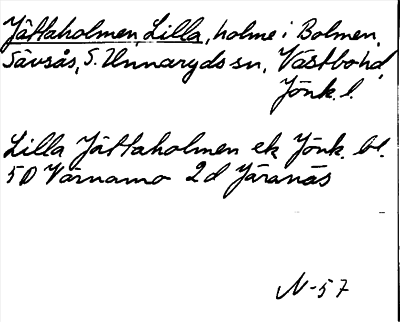 Jättaholmen, Lilla, holme i Bolmen,
Sävsås, S. Unnaryds sn, Västbo hd,
Jönk. l.
Lilla Jättaholmen ek Jönk. bl.
5D Värnamo 2d Järanäs
N-57